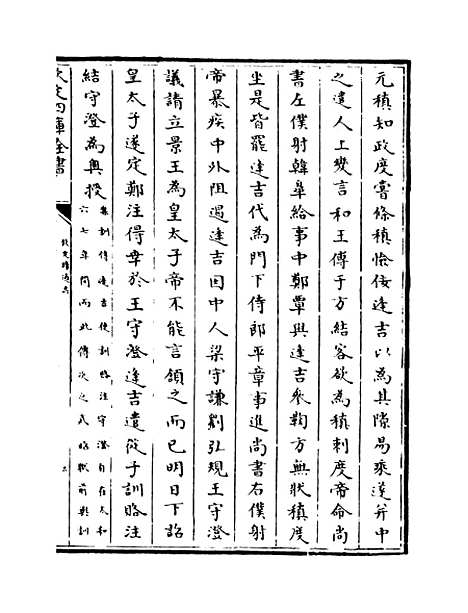 元稹知政度嘗條稹憸佞逢吉以為其隙易乗遂并中
之遣人上變言和王傅于方結客欲為稹刺度帝命尚
書左僕射韓臯給事中鄭覃與逢吉參鞫方無狀稹度
坐是皆罷逢吉代為門下侍郎平章事進尚書右僕射
帝暴疾中外阻遏逢吉因中人梁守謙劉弘規王守澄
議請立景王為皇太子帝不能言頷之而已明日下詔
皇太子遂定鄭注得幸於王守澄逢吉遣從子訓賂注
結守澄為奥援
案訓傳逢吉使訓賂注守澄自在太和
六七年間而此傳次之武昭獄前與訓
欽定四庫全書
欽定續通志